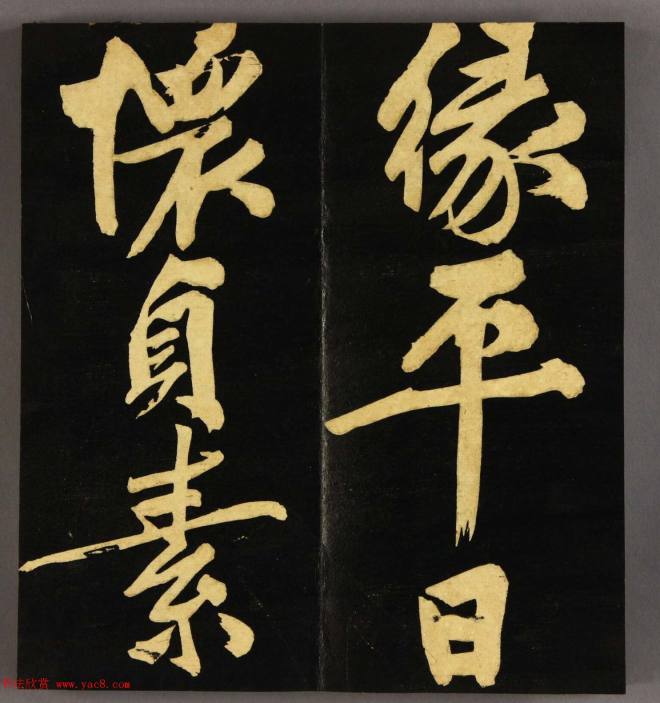 缘平日
懷貞素
法欣赏 www.yac8.com